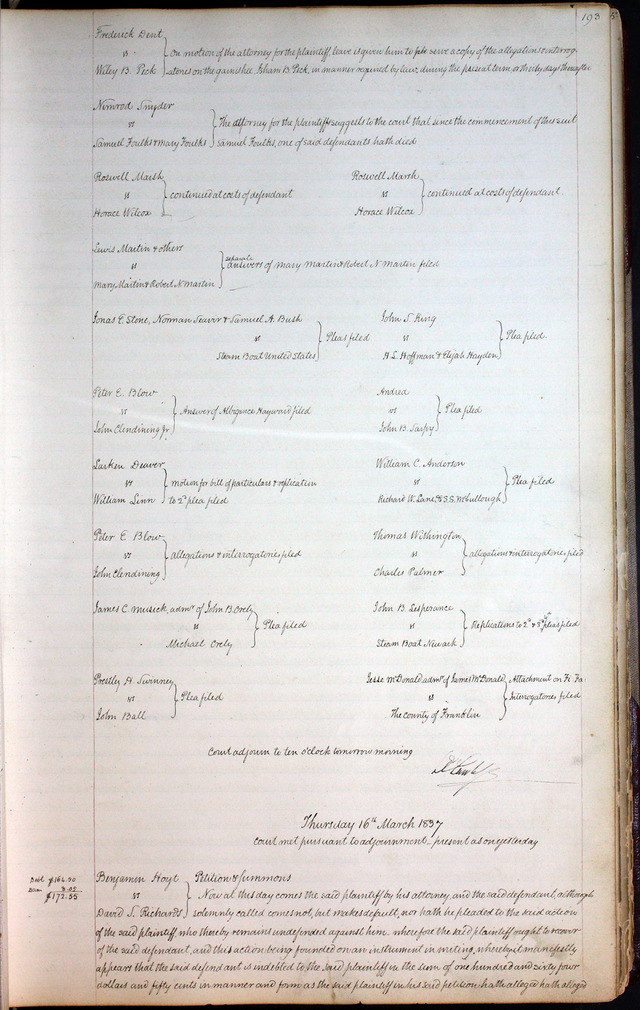 193
Frederick Dent
vs
Wiley B. Peck
On motion of the attorney for the plaintiff leave is given him to serve a copy of the allegations & interrog-
atories on the garnishee Isham B. Peck, in manner required by law, during the present term or thirty days thereafter
Nimrod Snyder
vs
Samuel Foulks & Mary Foulks
The attorney for the plaintiff suggests to the court that since the commencement of this suit
Samuel Foulks, one of said defendants hath died
Roswell Marsh
vs
Horace Wilcox
continued at costs of defendant
Roswell Marsh
vs
Horace Wilcox
continued at costs of defendant
Lewis Martin & others
vs
Mary Martin & Robert N Martin
separate
answers of Mary Martin & Robert N. Martin filed
Jonas E Stone, Norman Seaver & Samuel A. Bush
vs
Steam Boat United States
Pleas filed
John S. King
vs
A. L. Hoffman & Elijah Hayden
Plea filed
Peter E. Blow
vs
John Clendining Jr
Answer of Hayward filed
Andrea
vs
John B. Sarpy
Plea filed
Larken Deaver
vs
William Linn
motion for bill of particulars & replication
to 2d plea filed
William C. Anderson
vs
Richard W. Lane, & S. S. McCullough
Plea filed
Peter E Blow
vs
John Clendining
allegations & interrogatories filed
Thomas Withington
vs
Charles Palmer
allegations & interrogatories filed
James C. Musick, admr of John B. Orely
vs
Michael Orely
Plea filed
John B. Lesperance
vs
Steam Boat Newark
Replications to 2d & 3d pleas filed
Prestley A Swinney
vs
John Ball
Plea filed
Jesse McDonald admr of James McDonald
vs
The county of Franklin
Attachment on Fi. Fa.
Interrogatories filed
Court adjourn to ten o'clock tomorrow morning
Thursday 16th March 1837
Court met pursuant to adjournment present as on yesterday
Debt $164.50
Dam 8.05
$172.55
Benjamin Hoyt
vs
David S. Richards
Petition & summons
Now at this day comes the said plaintiff by his attorney, and the said defendant, although
solemnly called comes not, but makes default, nor hath he pleaded to the said action
of the said plaintiff who thereby remains undefended against him. wherefore the said plaintiff ought to recover
of the said defendant, and this action being founded on an instrument in writing, whereby it manifestly
appears that the said defendant is indebted to the said plaintiff in the sum of one hundred and sixty four
dollars and fifty cents in manner and form as the said plaintiff in his said petition hath alleged hath alleged